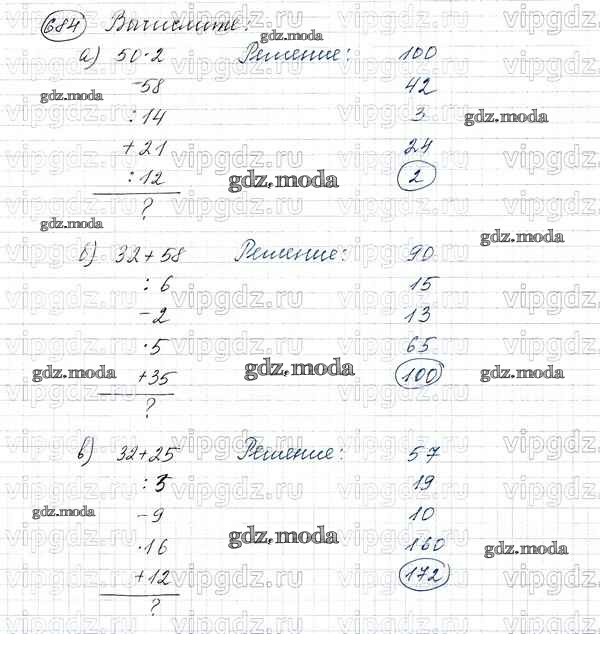 684 Вычислите:
а) 50·2 Решение: 100
-58 42
:14 3
+21 24
:12 2
?
б) 32+58 Решение: 90
:6 15
-2 13
·5 65
+35 100
?
в) 32+25 Решение: 57
:3 19
-9 10
·16 160
+12 172
?
gdz.moda
vipgdz.ru